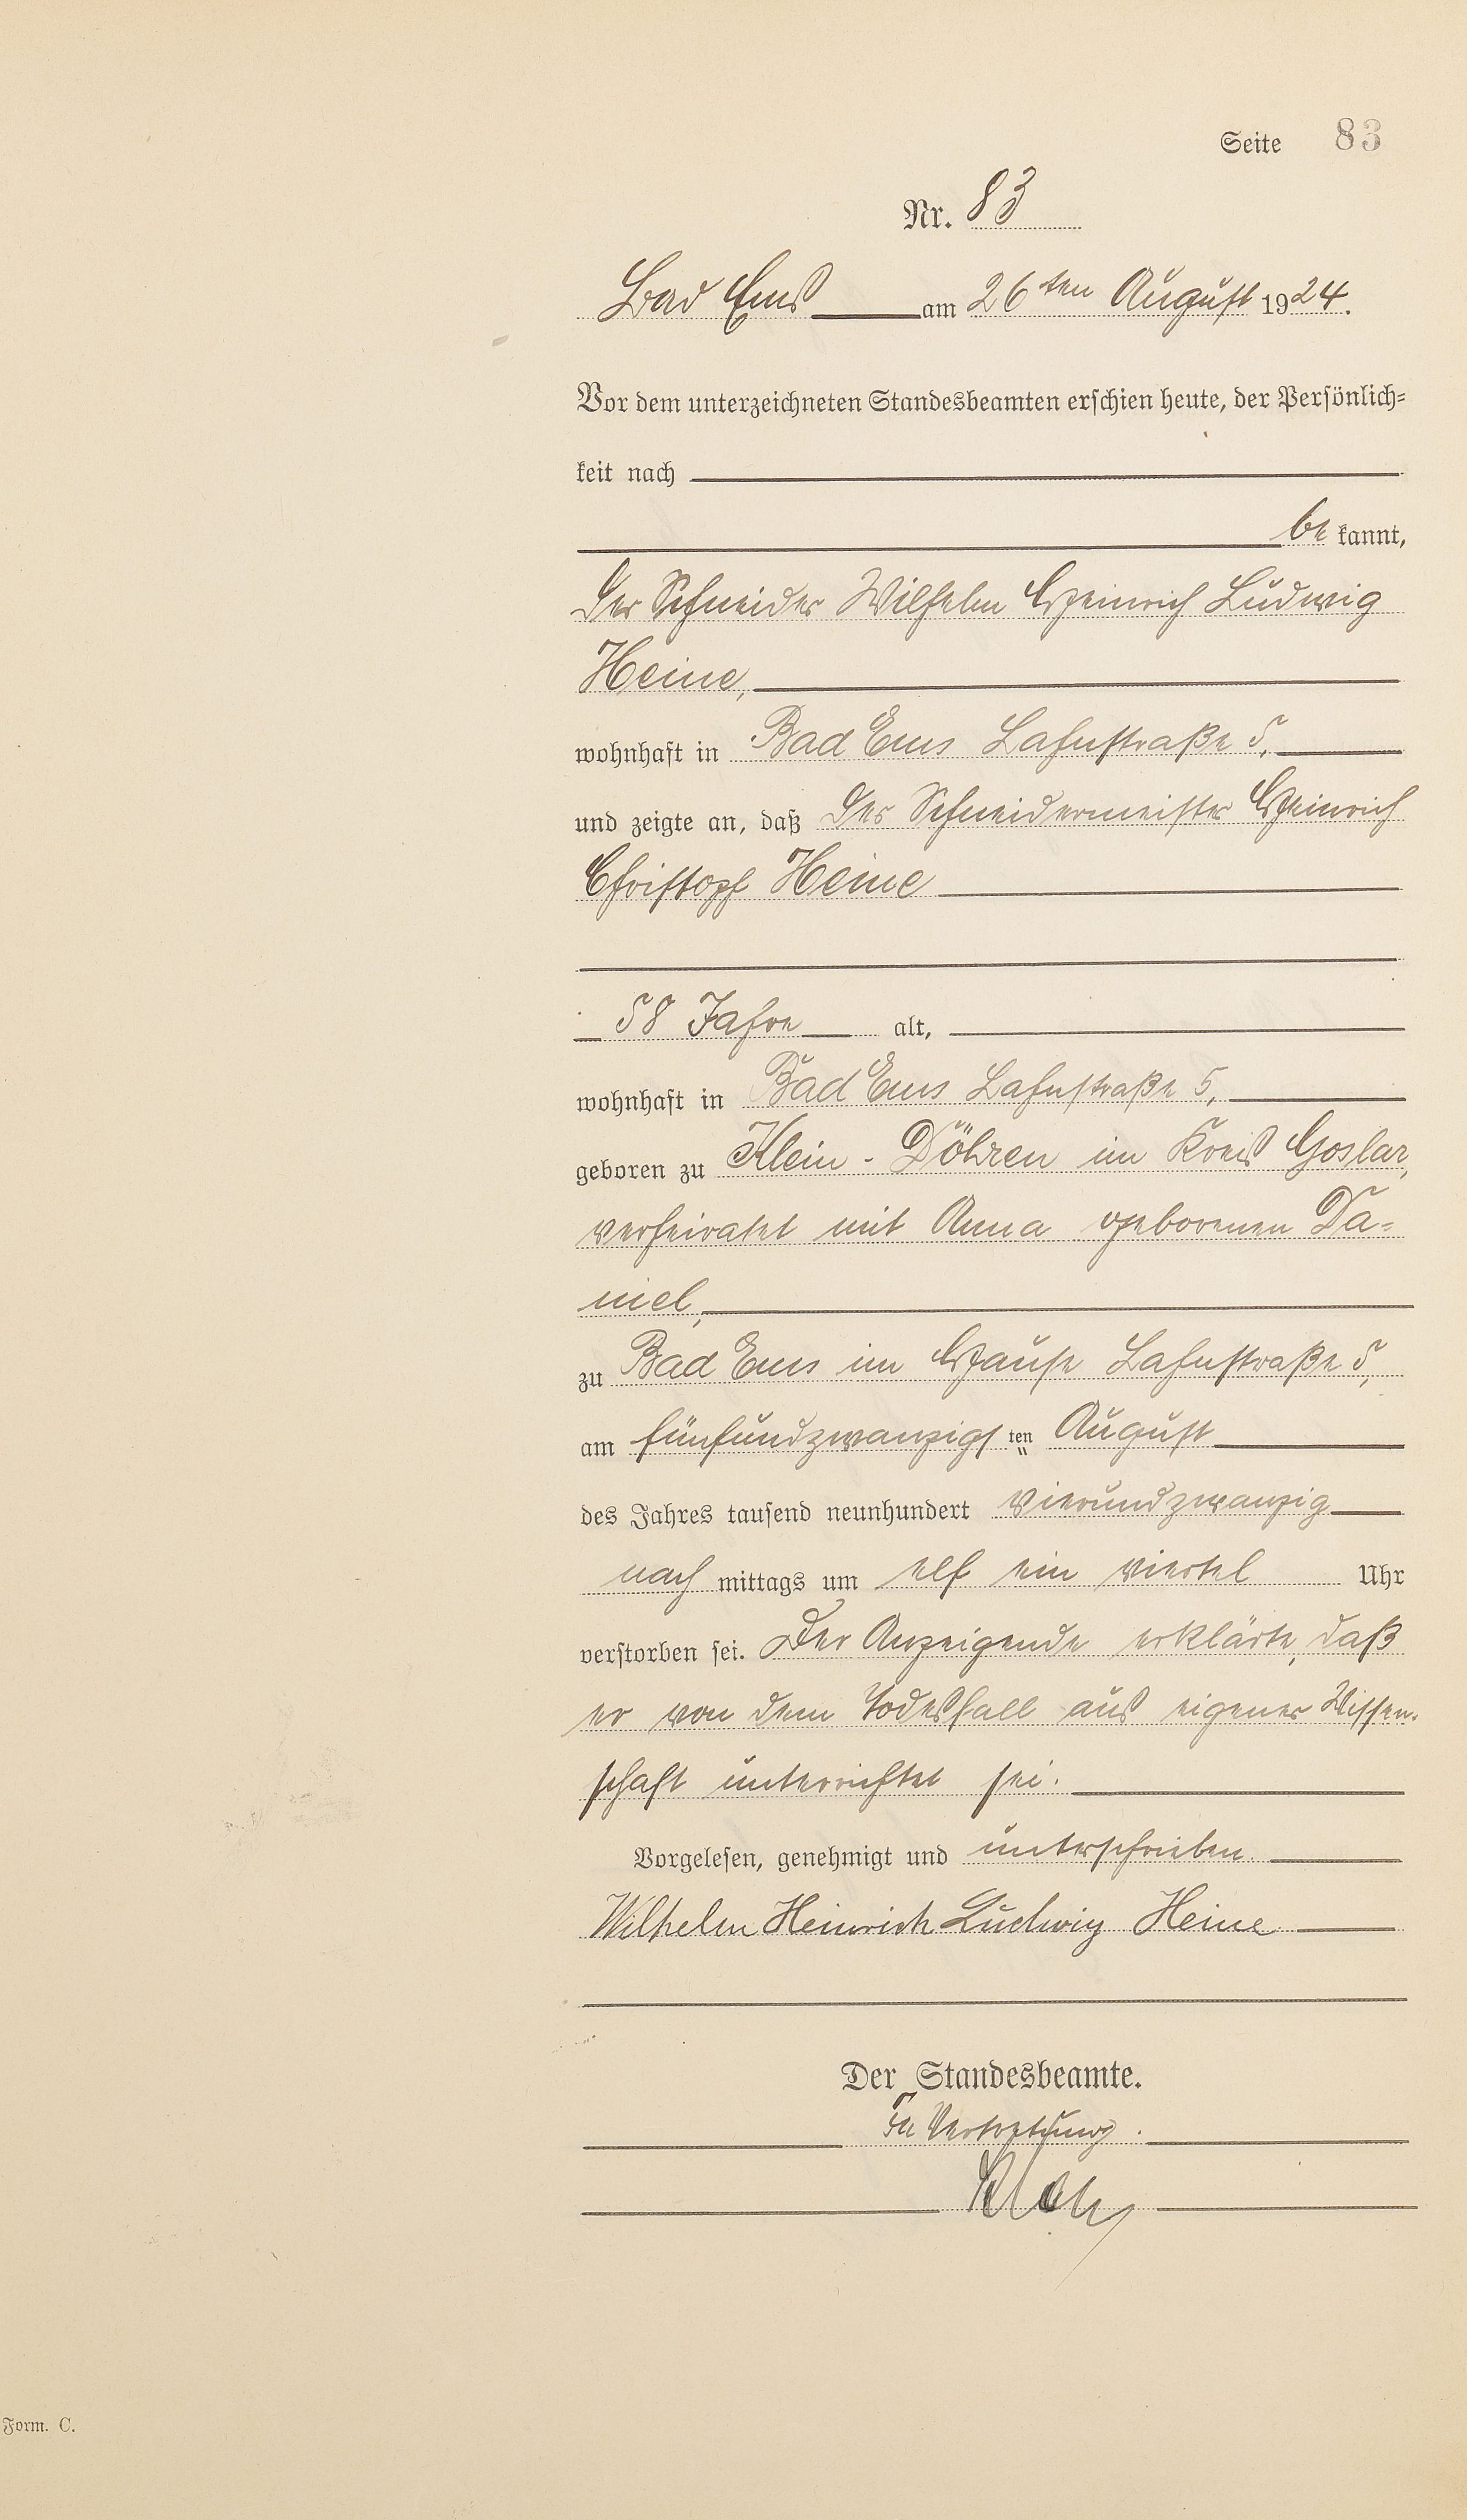 Seite 83
Nr. 83
Bad Ems am 26ten August 1924.
Vor dem unterzeichneten Standesbeamten erschien heute, der Persönlich-
keit nach
be kannt,
der Schneider Wilhelm Heinrich Ludwig
Heine,
wohnhaft in Bad Ems Lahnstraße 5,
und zeigte an, daß der Schneidermeister Heinrich
Christoph Heine
58 Jahre alt,
wohnhaft in Bad Ems Lahnstraße 5,
geboren zu Klein-Döhren im Kreis Goslar,
verheiratet mit Anna geborenen Da-
niel,
zu Bad Ems im Hause Lahnstraße 5,
am fünfundzwanzigsten August
des Jahres tausend neunhundert vierundzwanzig
nach mittags um elf ein viertel Uhr
verstorben sei. Der Anzeigende erklärte, daß
er von dem Todesfall aus eigener Wissen-
schaft unterrichtet sei.
Vorgelesen, genehmigt und unterschrieben.
Wilhelm Heinrich Ludwig Heine
Der Standesbeamte.
In Vertretung.
Form. C.